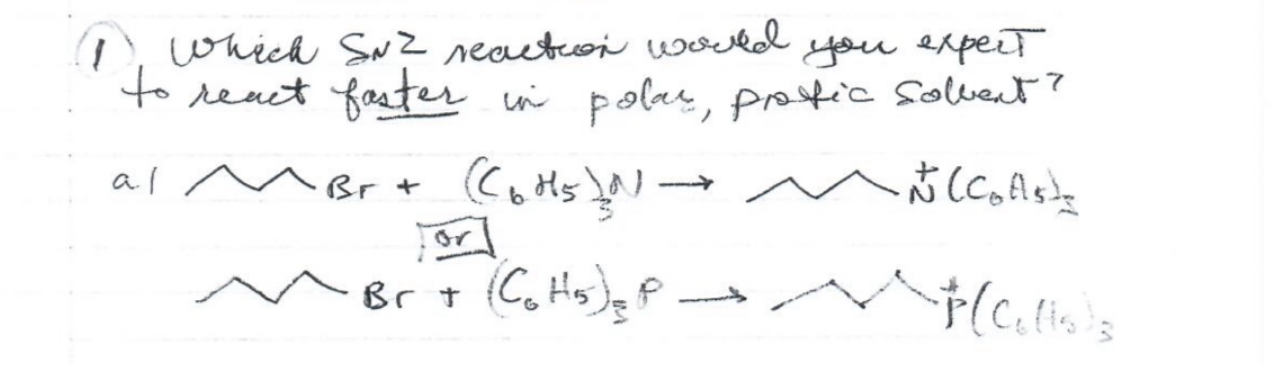 ① Which SN2 reaction would you expect
to react faster in polar, protic solvent?
a.) Br + (C6H5)3N → N+(C6H5)3
or
Br + (C6H5)3P → P+(C6H5)3